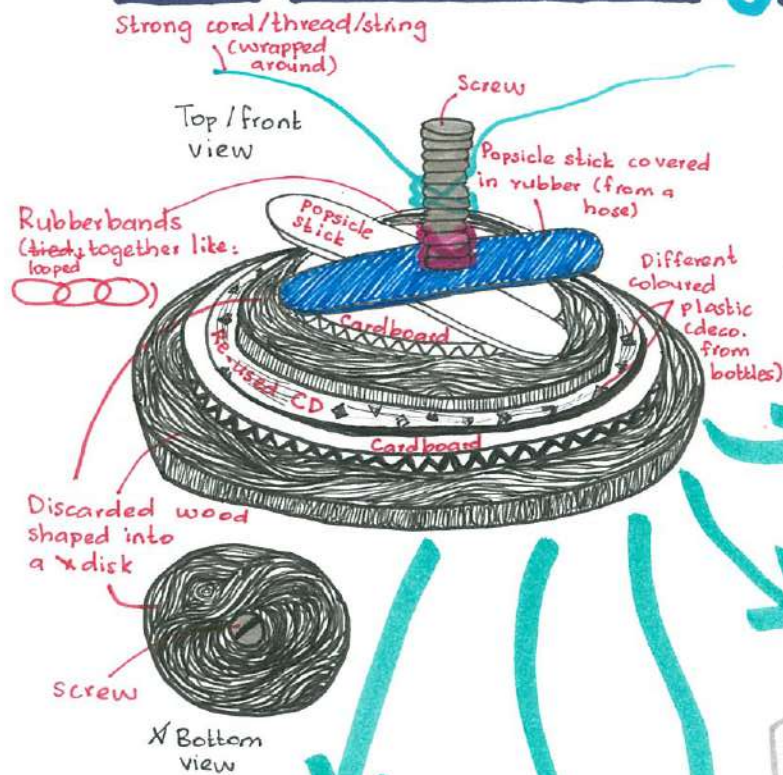 Strong cord/thread/string
(wrapped
around)
Screw
Top/front
view
Popsicle stick covered
in rubber (from a
hose)
Popsicle
stick
Rubberbands
(tied, together like:
looped
Different
coloured
plastic
(deco.
from
bottles)
Cardboard
Re-used CD
Cardboard
Discarded wood
shaped into
a disk
Screw
Bottom
view